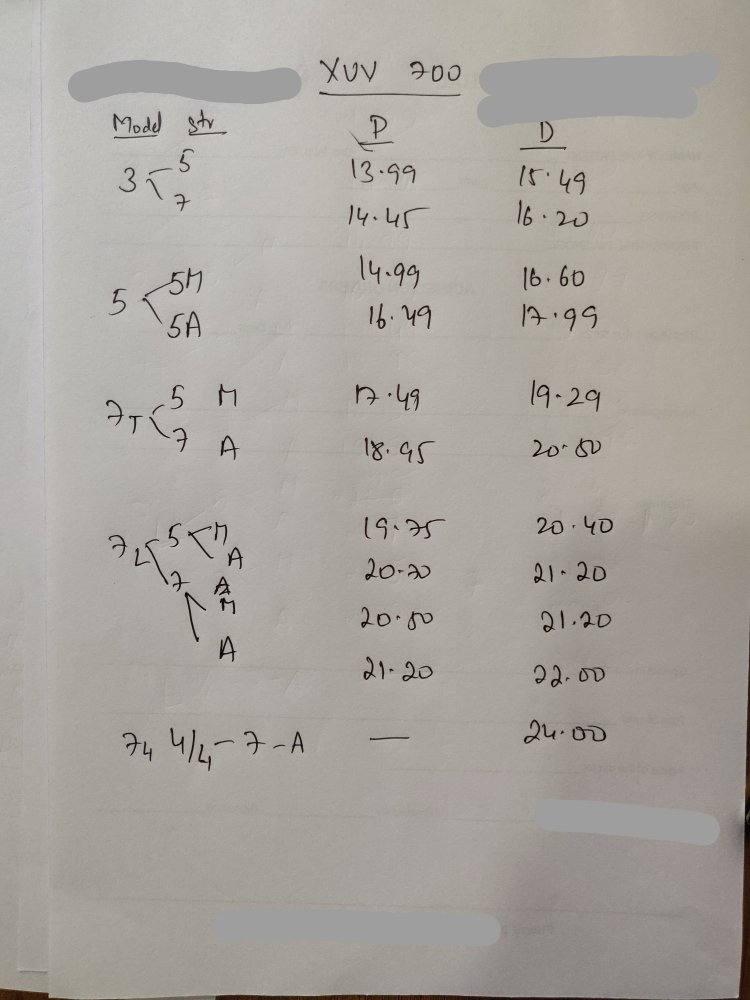 XUV 700
Model Str P D
3 5 13.99 15.49
7 14.45 16.20
5 5M 14.99 16.60
5A 16.49 17.99
7T 5 M 17.49 19.29
7 A 18.95 20.80
7L 5 M 19.75 20.40
A 20.70 21.20
7 M 20.80 21.20
A 21.20 22.00
74 4/4 - 7 - A — 24.00